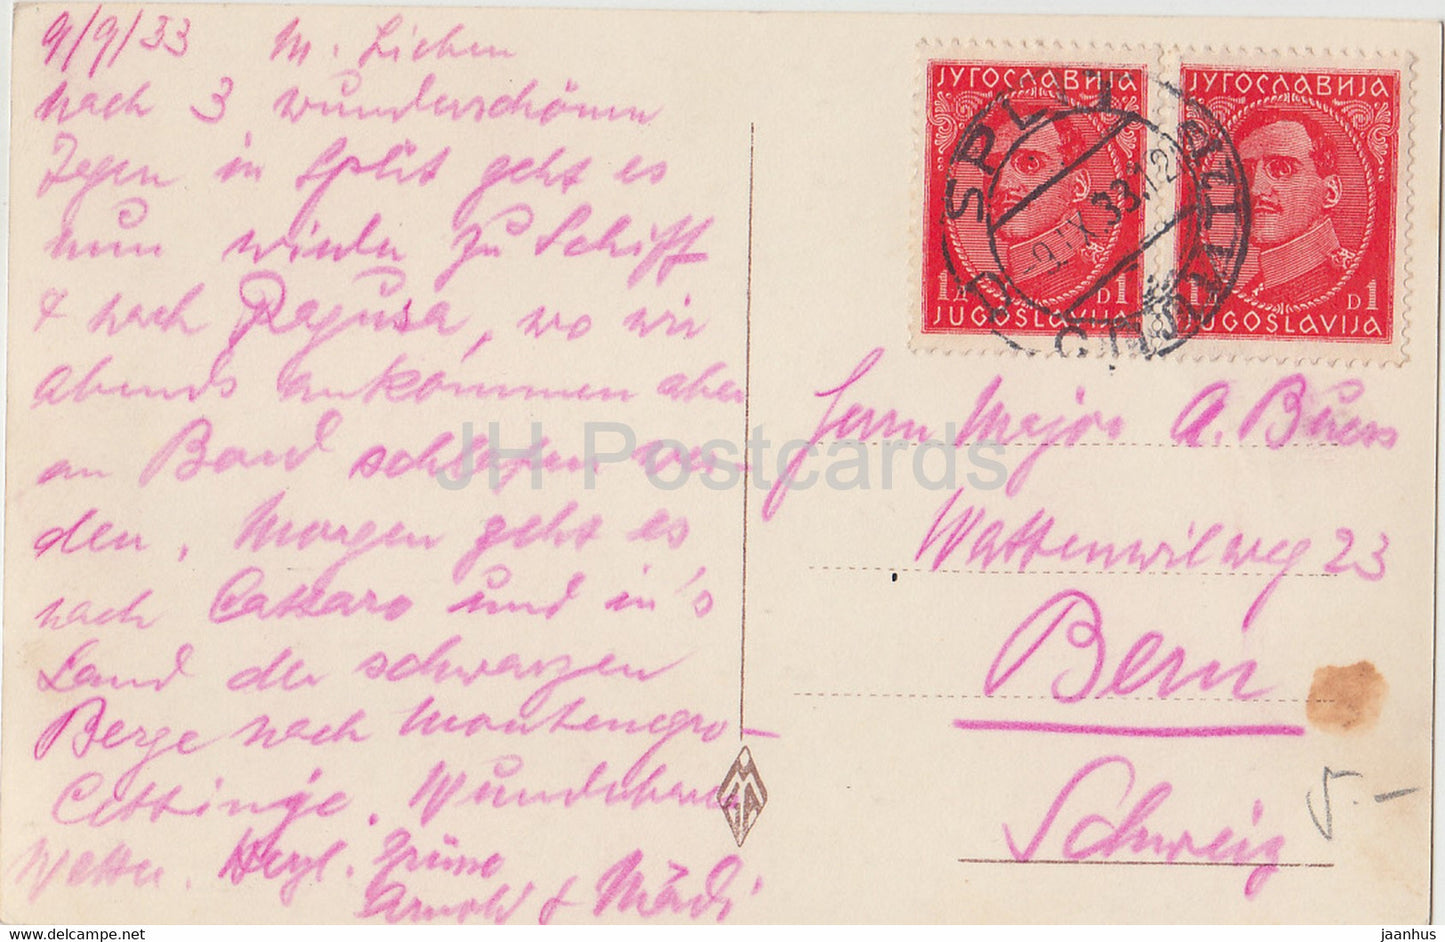 9/9/33 M. Lieben
nach 3 wunderschönen
Tagen in Split geht es
nun wieder zu Schiff
& nach Ragusa, wo wir
abends ankommen aber
an Bord schlafen wer-
den. Morgen geht es
nach Cattaro und in's
Land der schwarzen
Berge nach Montenegro -
Cettinje. Wunderbares
Wetter. Herzl. Grüsse
Arnold &
ЈУГОСЛАВИЈА
1 Д D 1
JUGOSLAVIJA
ЈУГОСЛАВИЈА
1 Д D 1
JUGOSLAVIJA
SPLIT
-9.IX.33.12
СПЛИТ
Herrn Major A. Büess
Wattenwilweg 23
Bern
Schweiz
5.-
JH Postcards
jaanhus on delcampe.net